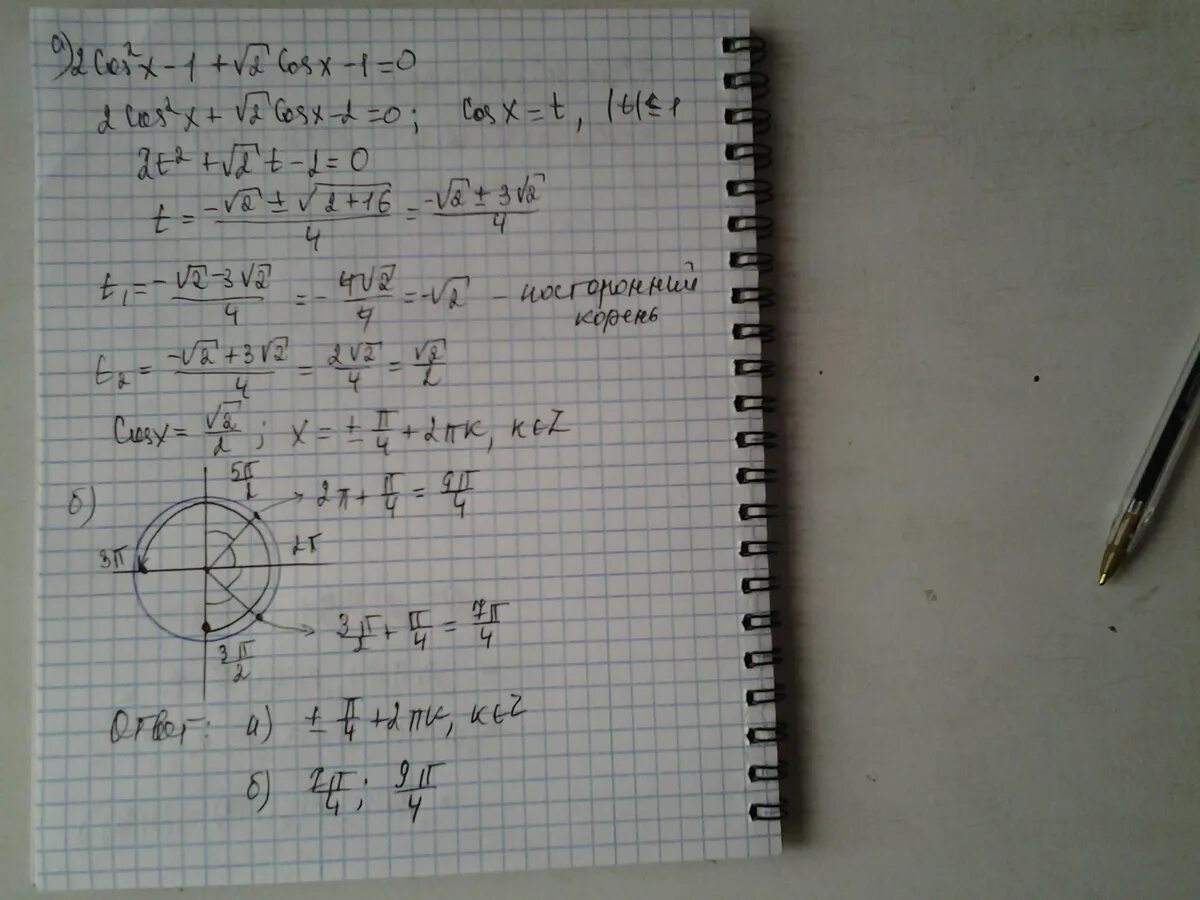 а) 2cos²x - 1 + √2 cosx - 1 = 0
2cos²x + √2 cosx - 2 = 0; cosx = t, |t| ≤ 1
2t² + √2 t - 2 = 0
t = (-√2 ± √(2+16))/4 = (-√2 ± 3√2)/4
t₁ = (-√2 - 3√2)/4 = -4√2/4 = -√2 - посторонний
корень
t₂ = (-√2 + 3√2)/4 = 2√2/4 = √2/2
cosx = √2/2; x = ± π/4 + 2πk, k∈Z
б)
5π/2
2π + π/4 = 9π/4
3π
2π
3π/2 + π/4 = 7π/4
3π/2
Ответ: а) ± π/4 + 2πk, k∈Z
б) 7π/4; 9π/4